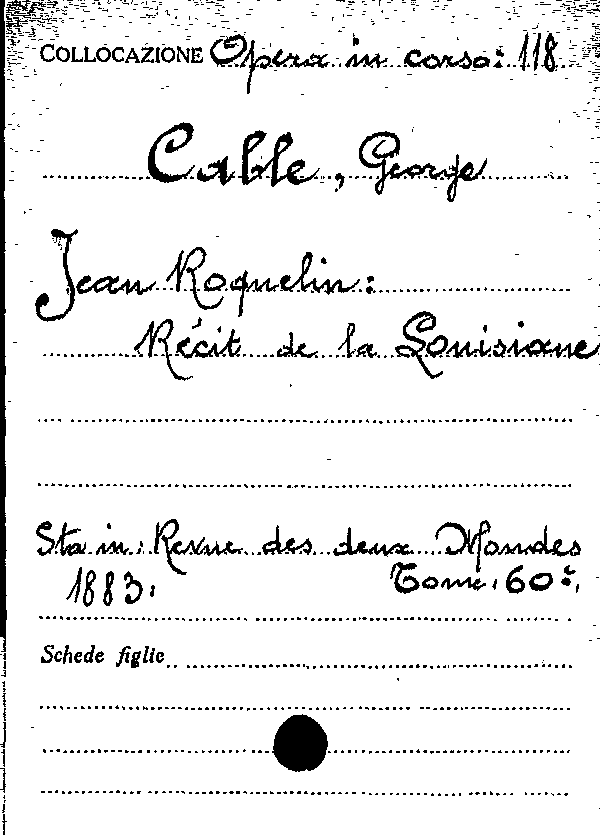 COLLOCAZIONE Opera in corso: 118
Cable, George
Jean Roquelin:
Récit de la Louisiane
Sta in: Revue des deux Mondes
1883: Tome: 60º,
Schede figlie